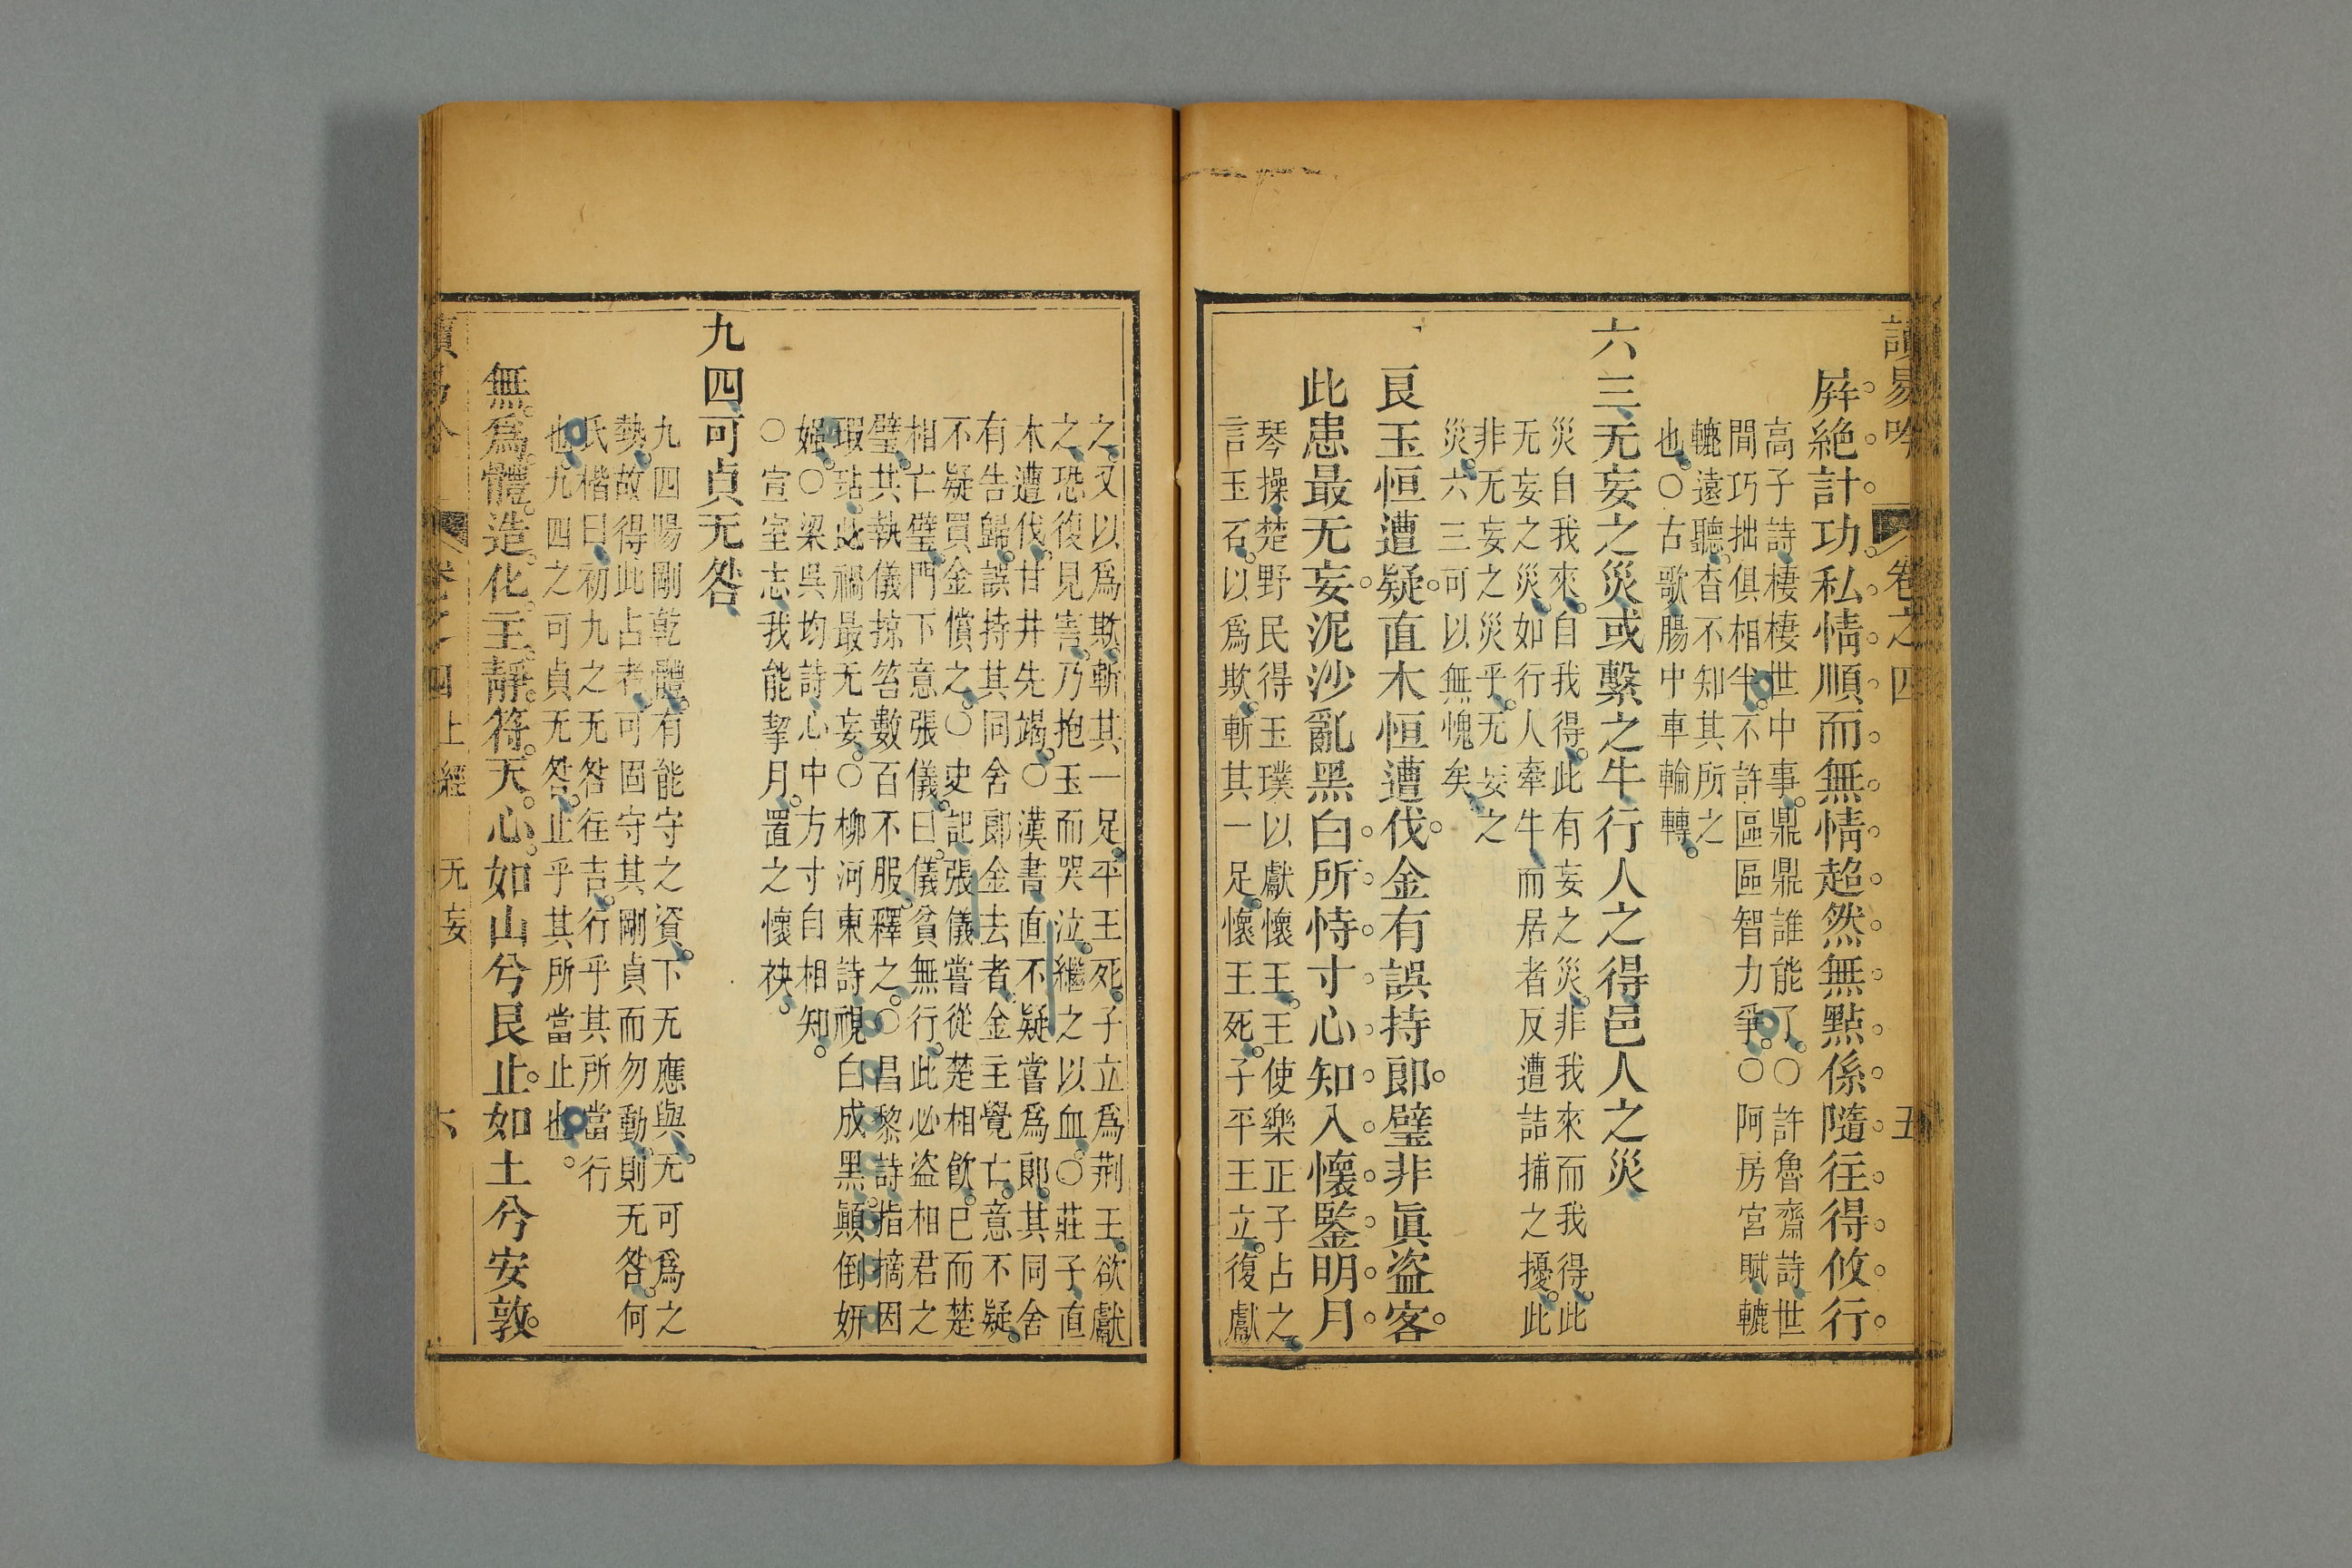 讀易吟 卷之四 五
屏絶計功私情順而無情超然無點係隨往得攸行
高子詩棲棲世中事鼎鼎誰能了○許魯齋詩世
間巧拙俱相半不許區區智力爭○阿房宮賦轆
轆遠聽杳不知其所之
也○古歌腸中車輪轉
六三无妄之災或繫之牛行人之得邑人之災
災自我來自我得此有妄之災非我來而我得此
无妄之災如行人牽牛而居者反遭詰捕之擾此
非无妄之災乎无妄之
災六三可以無愧矣
良玉恒遭疑直木恒遭伐金有誤持郎璧非眞盜客
此患最无妄泥沙亂黑白所恃寸心知入懷鑒明月
琴操楚野民得玉璞以獻懷王王使樂正子占之
言玉石以爲欺斬其一足懷王死子平王立復獻
之又以爲欺斬其一足平王死子立爲荆王欲獻
之恐復見害乃抱玉而哭泣繼之以血○莊子直
木遭伐甘井先竭○漢書直不疑嘗爲郎其同舍
有告歸誤持其同舍郎金去者金主覺亡意不疑
不疑買金償之○史記張儀嘗從楚相飮已而楚
相亡璧門下意張儀曰儀貧無行此必盜相君之
璧共執儀掠笞數百不服釋之○昌黎詩指摘因
瑕玷此禍最无妄○柳河東詩視白成黑顚倒妍
媸○梁吳均詩心中方寸自相知
○宣室志我能挈月置之懷袂
九四可貞无咎
九四陽剛乾體有能守之資下无應與无可爲之
勢故得此占者可固守其剛貞而勿動則无咎何
氏楷曰初九之无咎往吉行乎其所當行
也九四之可貞无咎止乎其所當止也
無爲體造化主靜符天心如山兮艮止如土兮安敦
卷之四 上經 无妄 六